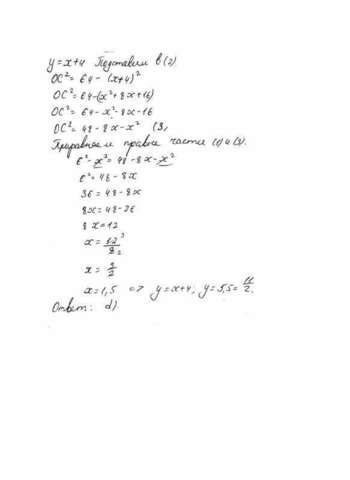 y = x+4 Подставим в (2)
OC² = 64 - (x+4)²
OC² = 64-(x²+8x+16)
OC² = 64-x²-8x-16
OC² = 48-8x-x² (3)
Приравняем правые части (1) и (3).
6²-x² = 48-8x-x²
6² = 48-8x
36 = 48-8x
8x = 48-36
8x = 12
x = 12/8 3 2
x = 3/2
x = 1,5 => y = x+4, y = 5,5 = 11/2.
Ответ: d).